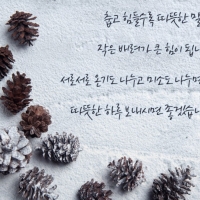 춥고 힘들수록 따뜻한 말
작은 배려가 큰 힘이 됩니
서로서로 온기도 나누고 미소도 나누면
따뜻한 하루 보내시면 좋겠습니